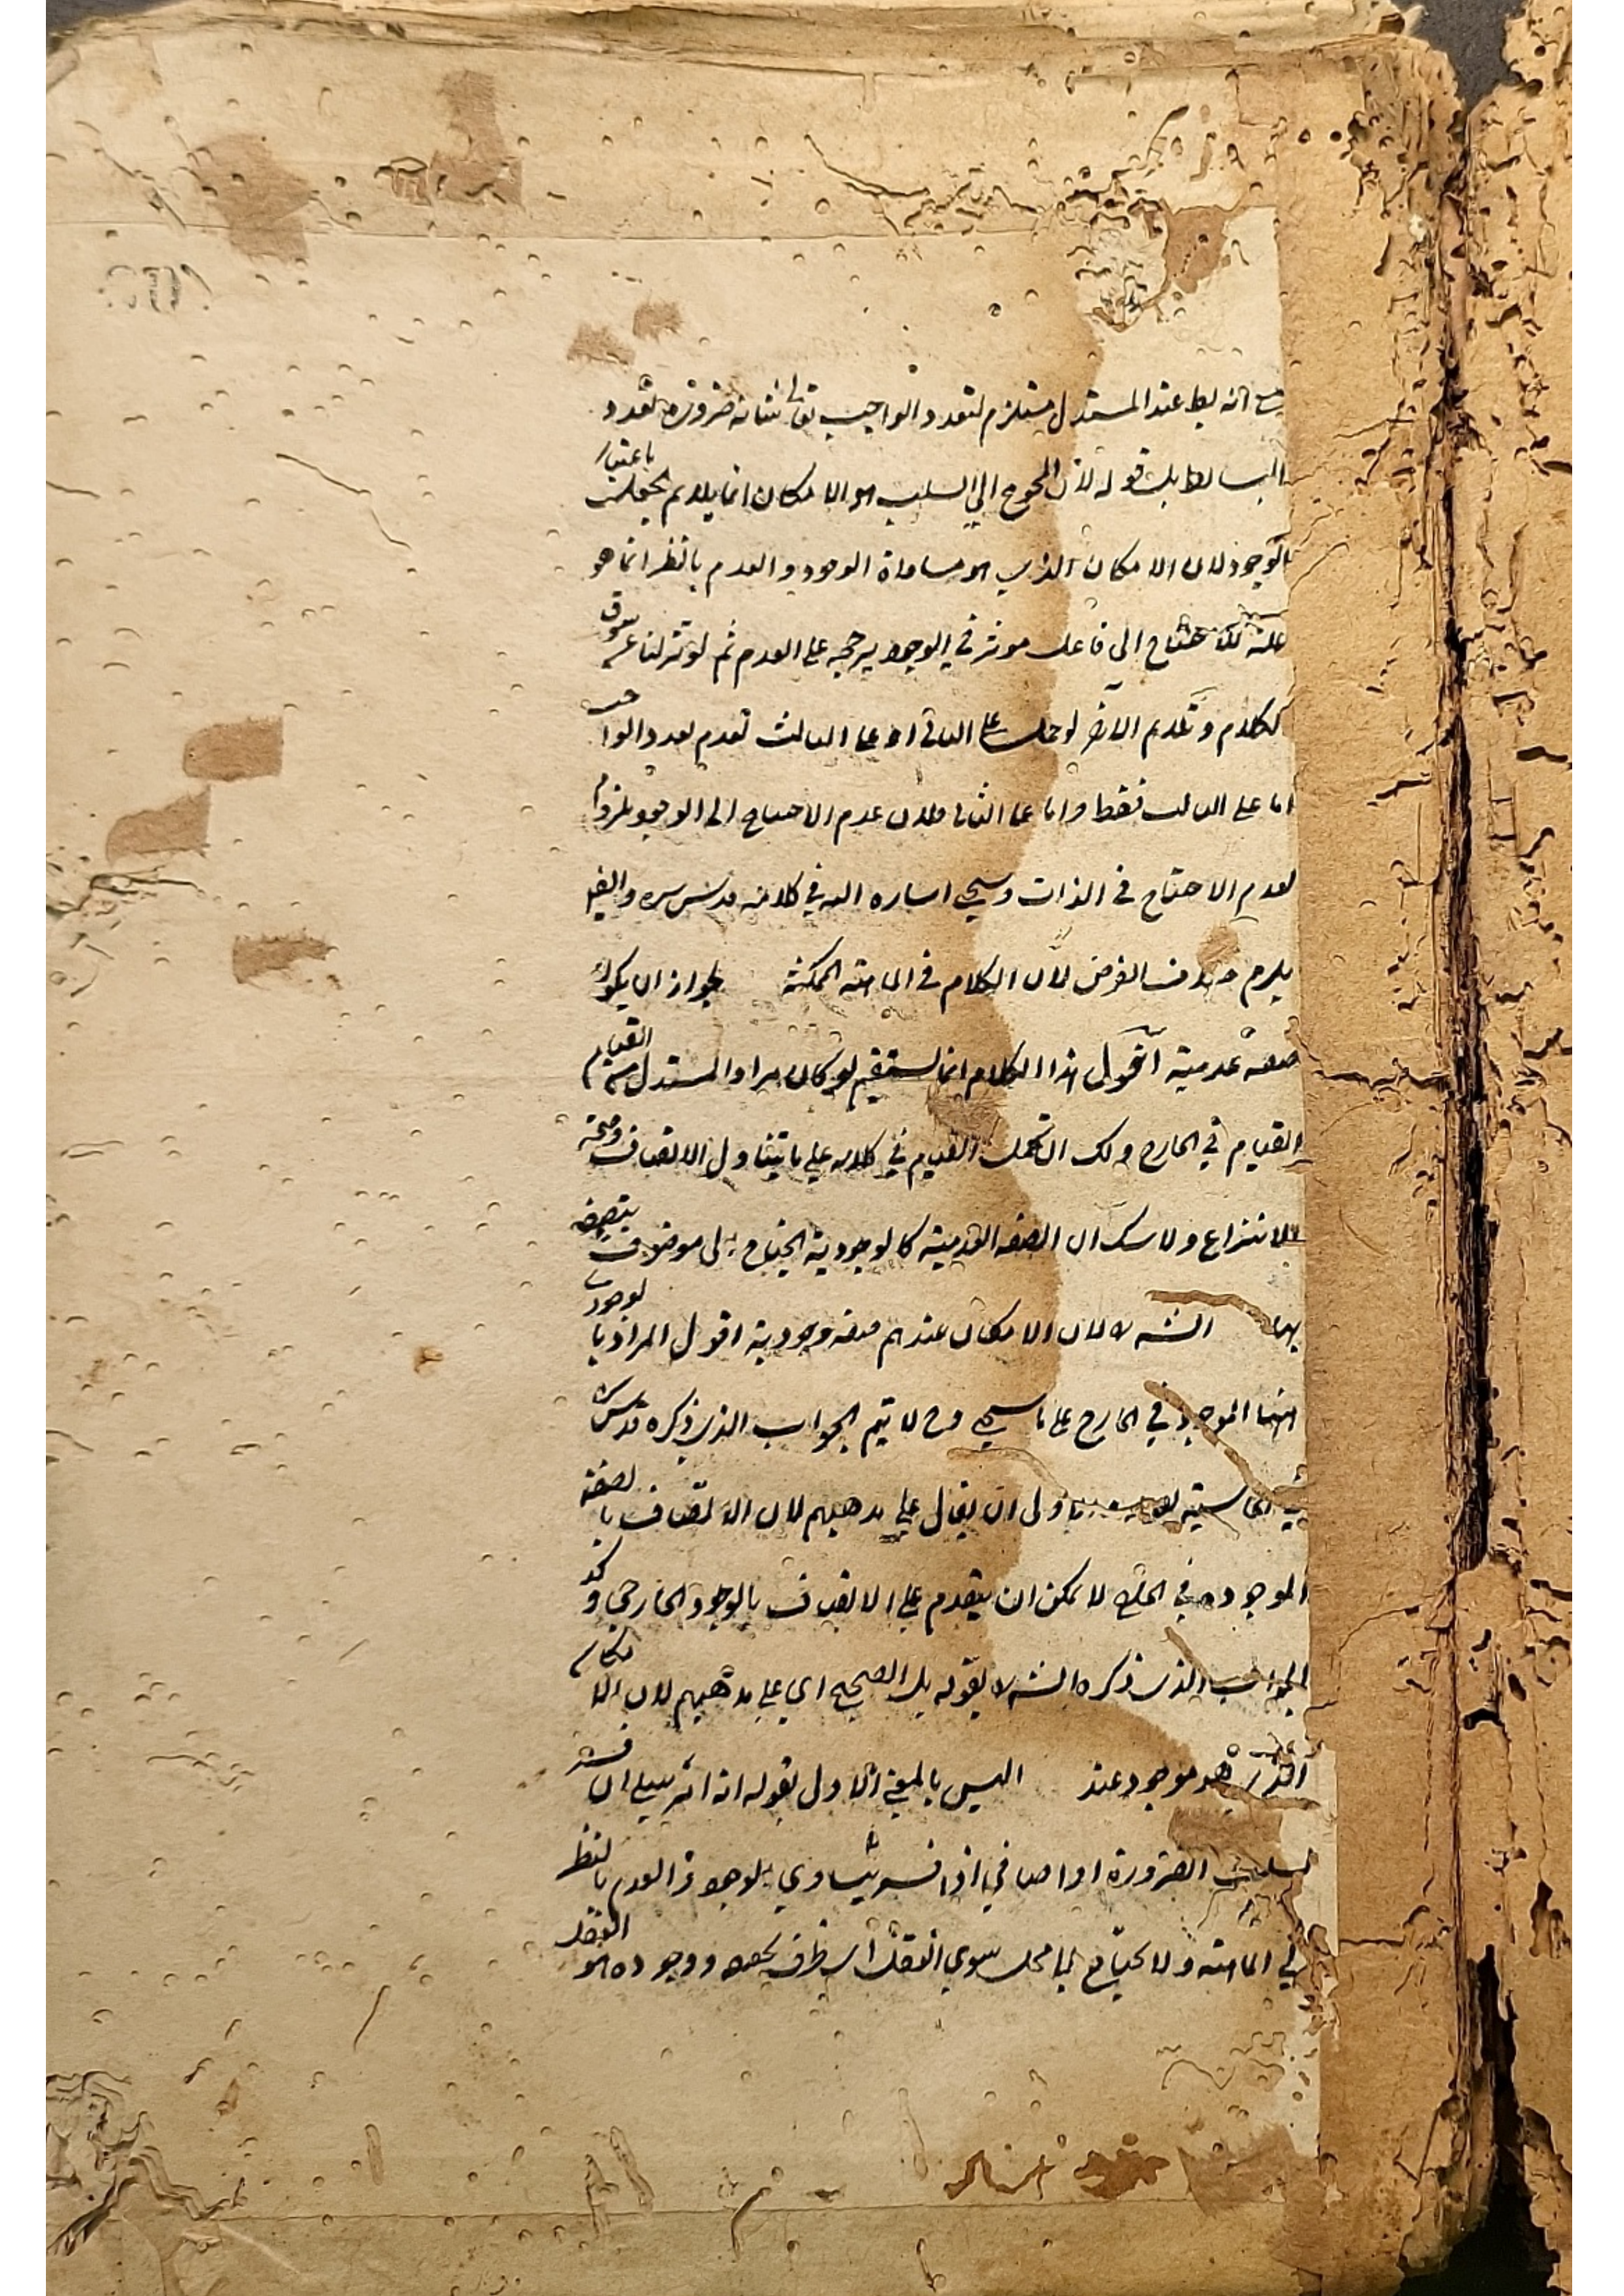 مع انه بط عند المستدل مستلزم لتعدد الواجب تعالى شانه ضرورة تعدد
قوله لان المحوج الى السبب هو الامكان انما يلايم باعتبار
الوجود لان الامكان الذي هو مساواة الوجود والعدم بالنظر انما هو
علة الى فاعل موثر في الوجود يرجحه على العدم ثم لو تنزلنا عن سوق
الكلام و على الثاني او على الثالث تعدد الواجب
اما على الثالث فقط واما على الثاني فلان عدم الاحتياج الى الوجود ملزوم
لعدم الاحتياج في الذات وسيجي اشاره اليه في كلامه قدس سره وايضا
يلزم خلاف الفرض لان الكلام في الماهية الممكنة لجواز ان يكون
صفة عدمية اقول هذا الكلام انما يستقيم لو كان مراد المستدل من القيام
القيام في الخارج ولك ان تحمل القيام في كلامه على ما يتناول الاتصاف وصحة
الانتزاع ولا شك ان الصفة العدمية كالوجودية تحتاج الى موصوف يتصف
بها الش لا لان الامكان عندهم صفة وجودية اقول المراد بالوجود
ههنا الموجود في الخارج على ما سيجي وح لا يتم الجواب الذي ذكره قدس سره
في الحاشية بقوله ان يقال على مذهبهم لان الاتصاف بالصفة
الموجودة في الخارج لا يمكن ان يتقدم على الاتصاف بالوجود الخارجي وكذا
الجواب الذي ذكره الش لا بقوله بل الصحيح اي على مذهبهم لان الامكان
الذي هو موجود عند اليس بالمعنى الاول بقوله انه امر سلبي ان فسر
بسلب الضرورة او اضافي ان فسر بتساوي الوجود والعدم بالنظر
الى الماهية ولا يحتاج الى محل سوى العقل اي ظرف ووجوده هو العقل